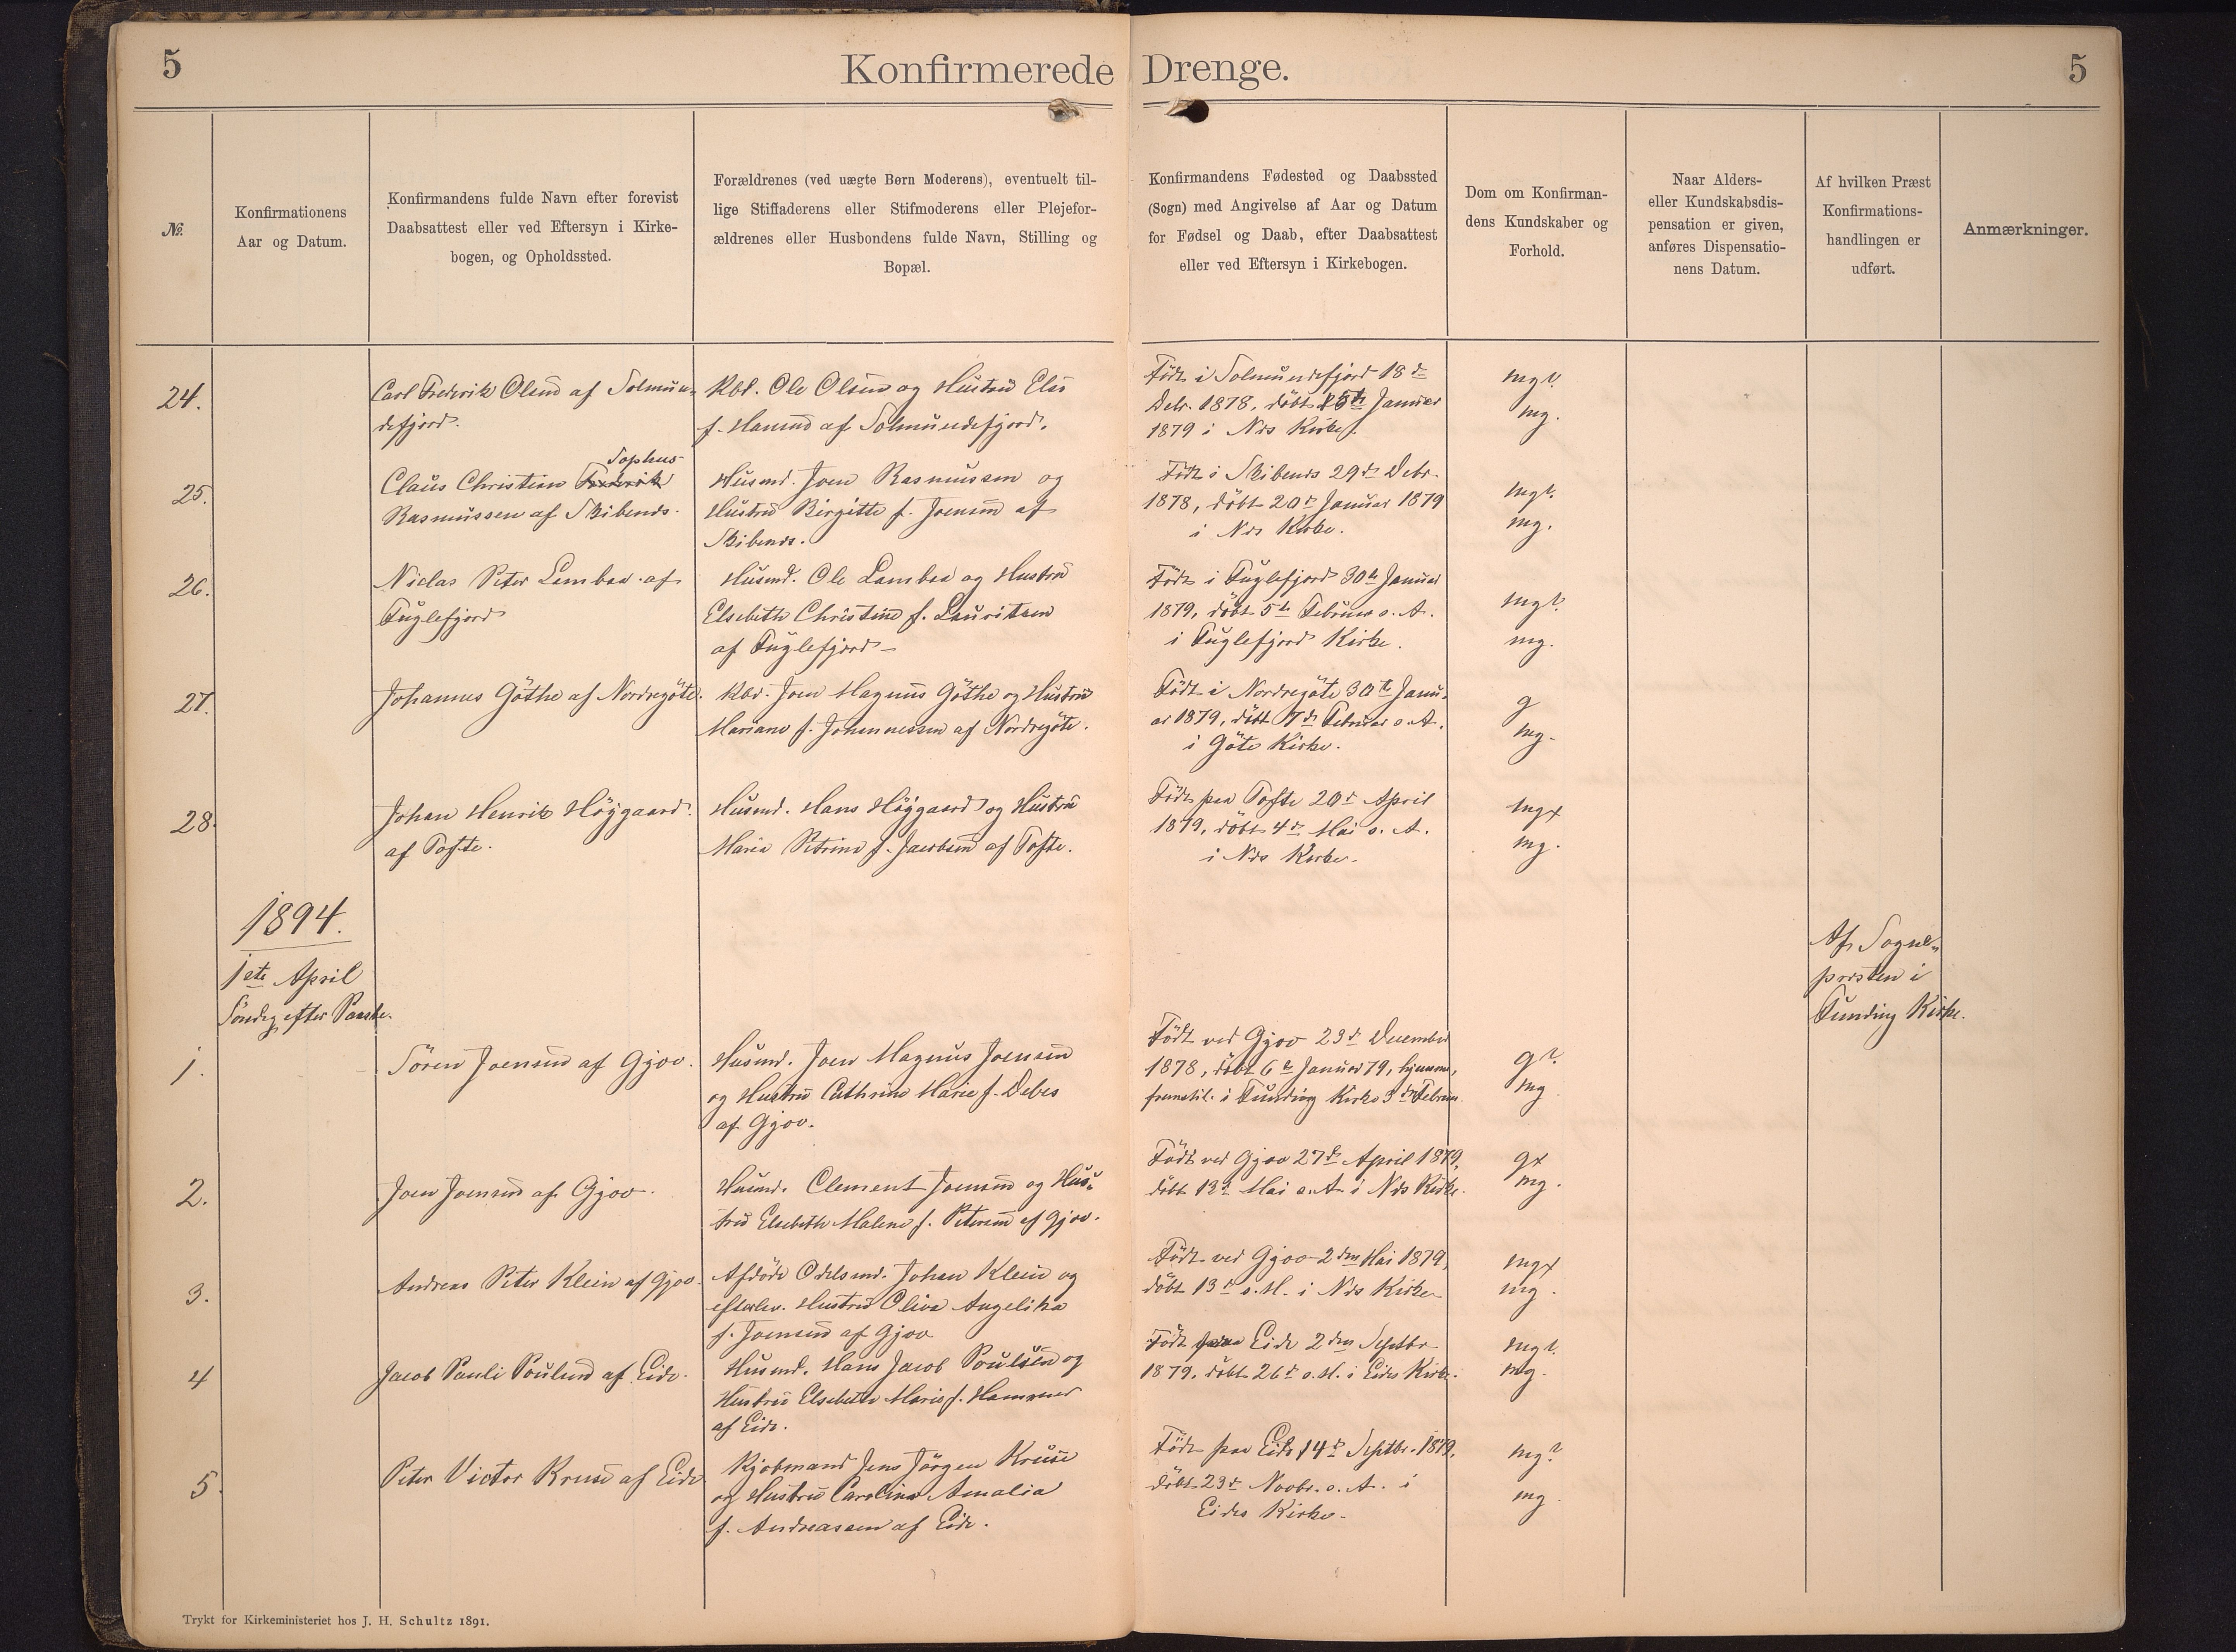 5
Konfirmerede Drenge.
5
No.
Konfirmationens
Aar og Datum.
Konfirmandens fulde Navn efter forevist
Daabsattest eller ved Eftersyn i Kirke-
bogen, og Opholdssted.
Forældrenes (ved uægte Børn Moderens), eventuelt til-
lige Stiffaderens eller Stifmoderens eller Plejefor-
ældrenes eller Husbondens fulde Navn, Stilling og
Bopæl.
Konfirmandens Fødested og Daabssted
(Sogn) med Angivelse af Aar og Datum
for Fødsel og Daab, efter Daabsattest
eller ved Eftersyn i Kirkebogen.
Dom om Konfirman-
dens Kundskaber og
Forhold.
Naar Alders-
eller Kundskabsdis-
pensation er given,
anføres Dispensatio-
nens Datum.
Af hvilken Præst
Konfirmations-
handlingen er
udført.
Anmærkninger.
24.
Carl Frederik Olsen af Solmun-
defjord.
Kbd. Ole Olsen og Hustru Else
f. Hansen af Solmundefjord.
Födt i Solmundefjord 18 d
Debr. 1878, döbt 15 de Januar
1879 i Nds Kirke.
mg?
mg.
25.
Sophus
Claus Christian Frederik
Rasmussen af Skibenæs.
Husmd. Joen Rasmussen og
Hustru Birgitte f. Joensen af
Skibenæs.
Födt i Skibenæs 29 de Debr.
1878, döbt 20 d Januar 1879
i Nds Kirke.
mg?
mg.
26.
Niclas Peter Lambaa af
Fuglefjord
Husmd. Ole Lambaa og Hustru
Elsebeth Christine f. Lauritsen
af Fuglefjord
Födt i Fuglefjord 30 de Januar
1879, döbt 5 te Februar s. A.
i Fuglefjord Kirke.
mg?
mg.
27.
Johannes Göthe af Nordregöte.
Kbd. Joen Magnus Göthe og Hustru
Mariane f. Johannessen af Nordregöte.
Födt i Nordregöte 30 te Janu-
ar 1879, döbt 7 de Februar s. A.
i Göte Kirke.
g
mg.
28.
Johan Henrik Höjgaard
af Tofte.
Husmd. Hans Höjgaard og Hustru
Maria Petrine f. Jacobsen af Tofte.
Födt paa Tofte 20 d April
1879, döbt 4 d Mai s. A.
i Nds Kirke.
mgx
mg.
1894.
1ste April
Söndag efter Paaske.
Af Sogne-
præsten i
Funding Kirke.
1.
Sören Joensen af Gjov.
Husmd. Joen Magnus Joensen
og Hustru Cathrine Marie f. Debes
af Gjov.
Födt ved Gjov 23 d December
1878, döbt 6 te Januar 79, hjemme,
fremstil. i Funding Kirke 3 die Februar
g?
mg
2.
Joen Joensen af Gjov.
Husmd. Clement Joensen og Hus-
tru Elsebeth Malene f. Petersen af Gjov.
Födt ved Gjov 27 de April 1879,
döbt 13 d Mai s. A. i Nds Kirke.
gx
mg.
3.
Andreas Peter Klein af Gjov.
Afdöde Odelsmd. Johan Klein og
efterlev. Hustru Oliva Angelika
f. Joensen af Gjov
Födt ved Gjov 2 den Mai 1879,
döbt 13 d s. M. i Nds Kirke
mgx
mg.
4
Jacob Pauli Poulsen af Eide.
Husmd. Hans Jacob Poulsen og
Hustru Elsebeth Marie f. Hammer
af Eide.
Födt paa Eide 2 den Septbr
1879, döbt 26 d s. M. i Eides Kirke.
mg?
mg.
5.
Peter Victor Kruse af Eide
Kjöbmand Jens Jörgen Kruse
og Hustru Caroline Amalia
f. Andreasen af Eide.
Födt paa Eide 14 d Septbr. 1879,
döbt 23 d Novbr. s. A. i
Eides Kirke.
mg?
mg
Trykt for Kirkeministeriet hos J. H. Schultz 1891.